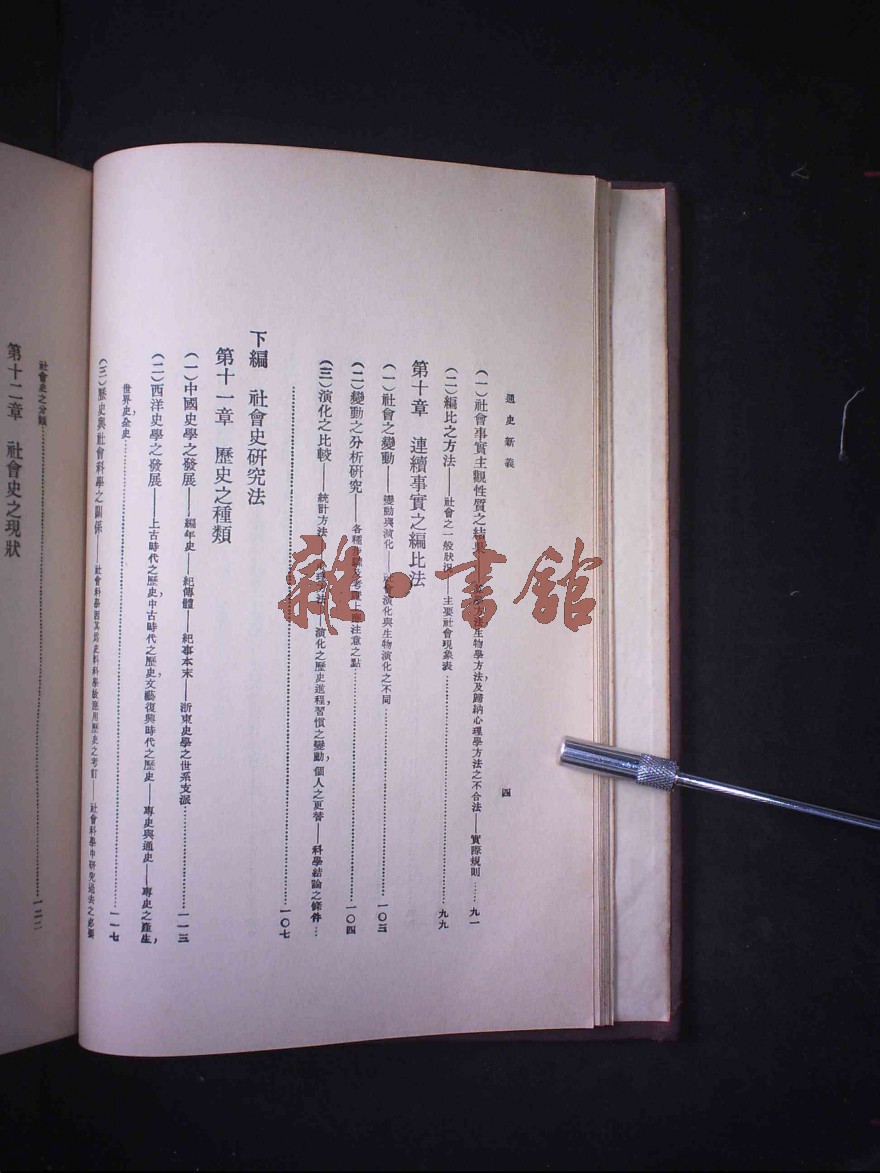 通史新義
四
(一)社會事實主觀性質之結果——方法生物學方法,及歸納心理學方法之不合法——實際規則……九一
(二)編比之方法——社會之一般狀況——主要社會現象表……九九
第十章 連續事實之編比法
(一)社會之變動——變動與演化——社會演化與生物演化之不同……一〇三
(二)變動之分析研究——各種步驟及考證上應注意之點……一〇四
(三)演化之比較——統計方法——心理方法——演化之歷史進程,習慣之變動,個人之更替——科學結論之條件…
……一〇七
下編 社會史研究法
第十一章 歷史之種類
(一)中國史學之發展——編年史——紀傳體——紀事本末——浙東史學之世系支派……一一三
(二)西洋史學之發展——上古時代之歷史,中古時代之歷史,文藝復興時代之歷史——專史與通史——專史之產生,
世界史,全史……一一七
(三)歷史與社會科學之關係——社會科學因其為史料科學故應用歷史之考訂——社會科學中研究過去之必要
社會史之分類……一二二
第十二章 社會史之現狀
雜·書館